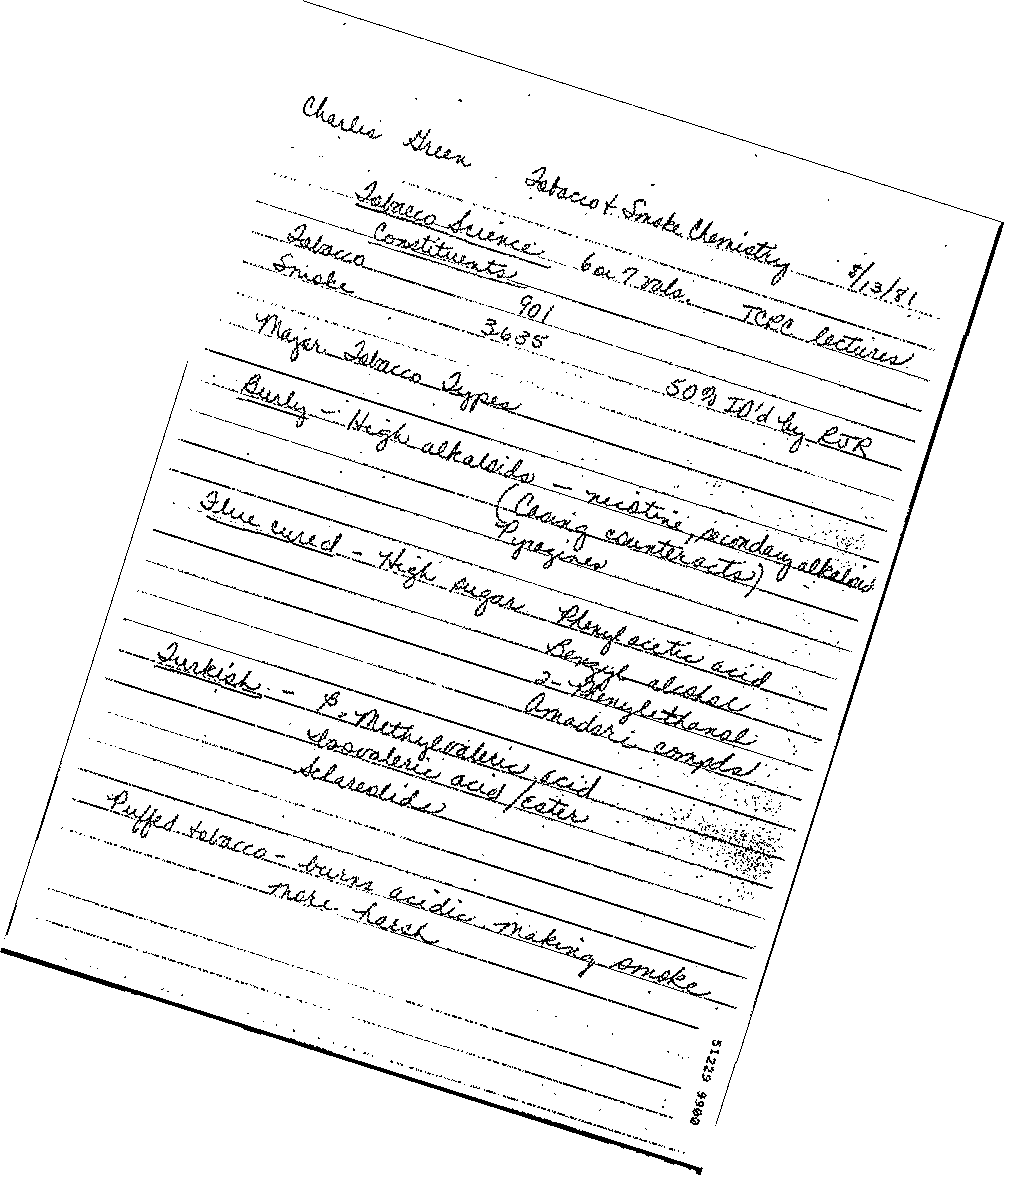 Charlie Green Tobacco & Smoke Chemistry 8/13/81
Tobacco Science 6 or 7 vols. TCRC lectures
Constituents
Tobacco 901
Smoke 3635 50% ID'd by RJR
Major Tobacco Types
Burly - High alkaloids - nicotine, secondary alkaloids
(Casing counteracts)
Pyrazines
Flue cured - High sugar Phenylacetic acid
Benzyl alcohol
2-Phenylethanol
Amadori compds
Turkish - β-Methylvaleric acid
Isovaleric acid/ester
Sclareolide
Puffed tobacco - burns acidic making smoke
more harsh
51229 9900